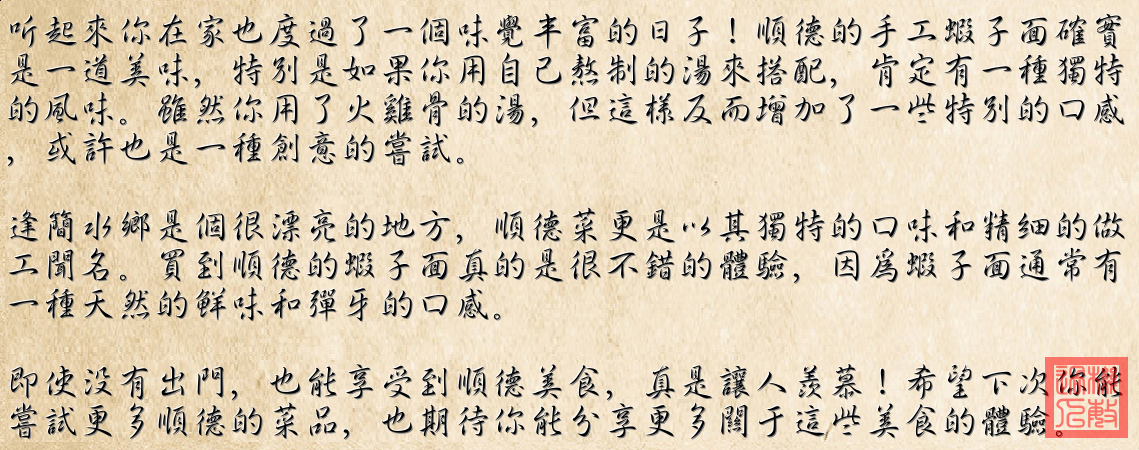 听起來你在家也度過了一個味覺丰富的日子！順德的手工蝦子面確實
是一道美味，特別是如果你用自己熬制的湯來搭配，肯定有一種獨特
的風味。雖然你用了火雞骨的湯，但這樣反而增加了一些特別的口感
，或許也是一種創意的嘗試。
逢簡水鄉是個很漂亮的地方，順德菜更是以其獨特的口味和精細的做
工聞名。買到順德的蝦子面真的是很不錯的體驗，因爲蝦子面通常有
一種天然的鮮味和彈牙的口感。
即使没有出門，也能享受到順德美食，真是讓人羨慕！希望下次你能
嘗試更多順德的菜品，也期待你能分享更多關于這些美食的體驗。